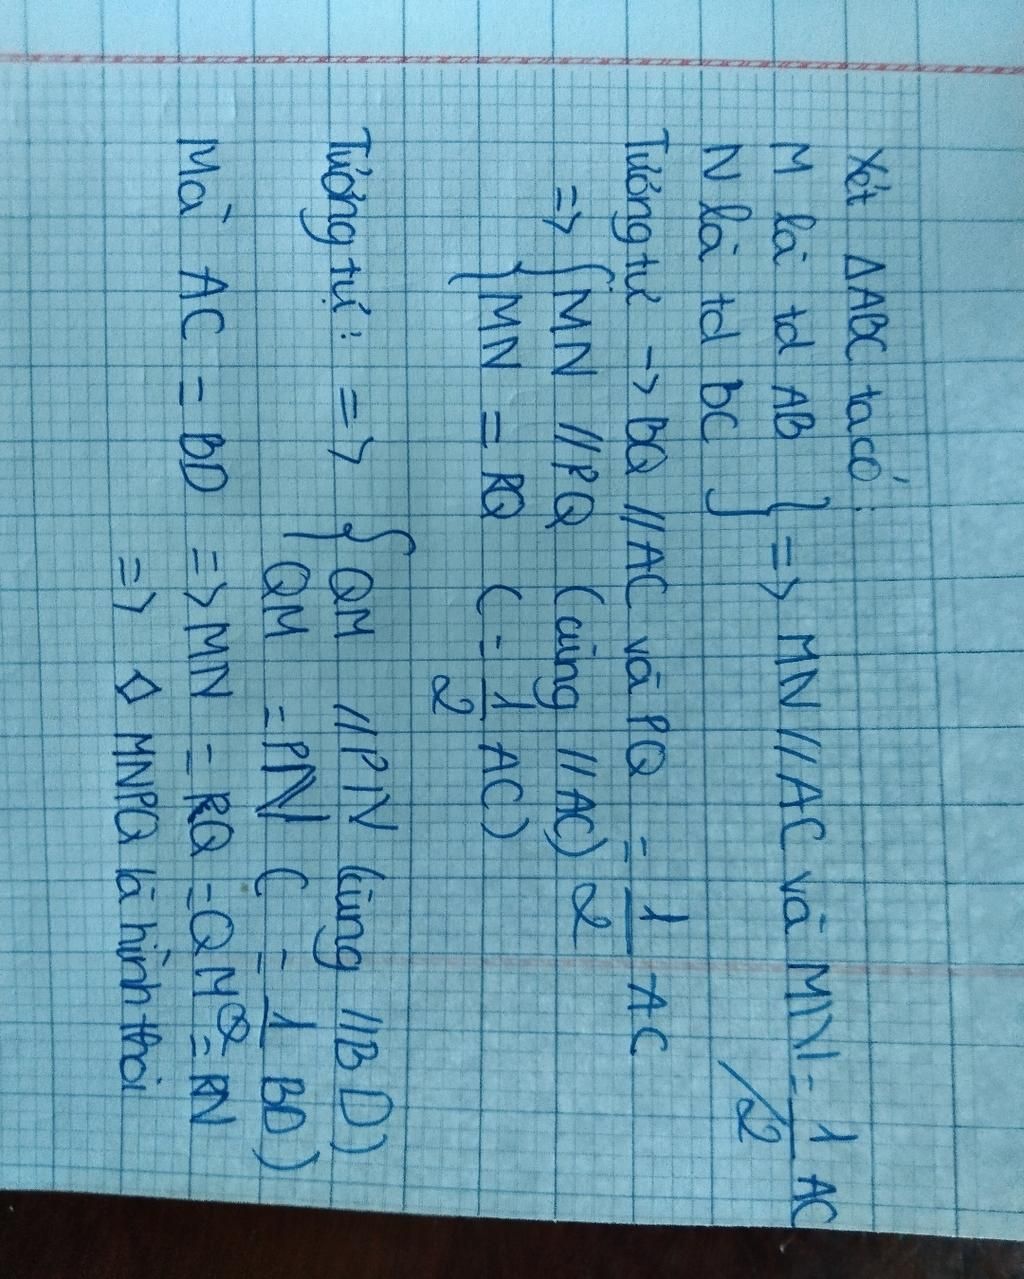 Xét ΔABC ta có:
M là td AB } => MN // AC và MN = 1/2 AC
N là td BC
Tương tự -> BQ // AC và PQ = 1/2 AC
=> { MN // PQ (cùng // AC)
{ MN = PQ ( = 1/2 AC)
Tương tự: => { QM // PN (cùng // BD)
{ QM = PN ( = 1/2 BD)
Mà AC = BD => MN = PQ = QM = PN
=> ◇ MNPQ là hình thoi